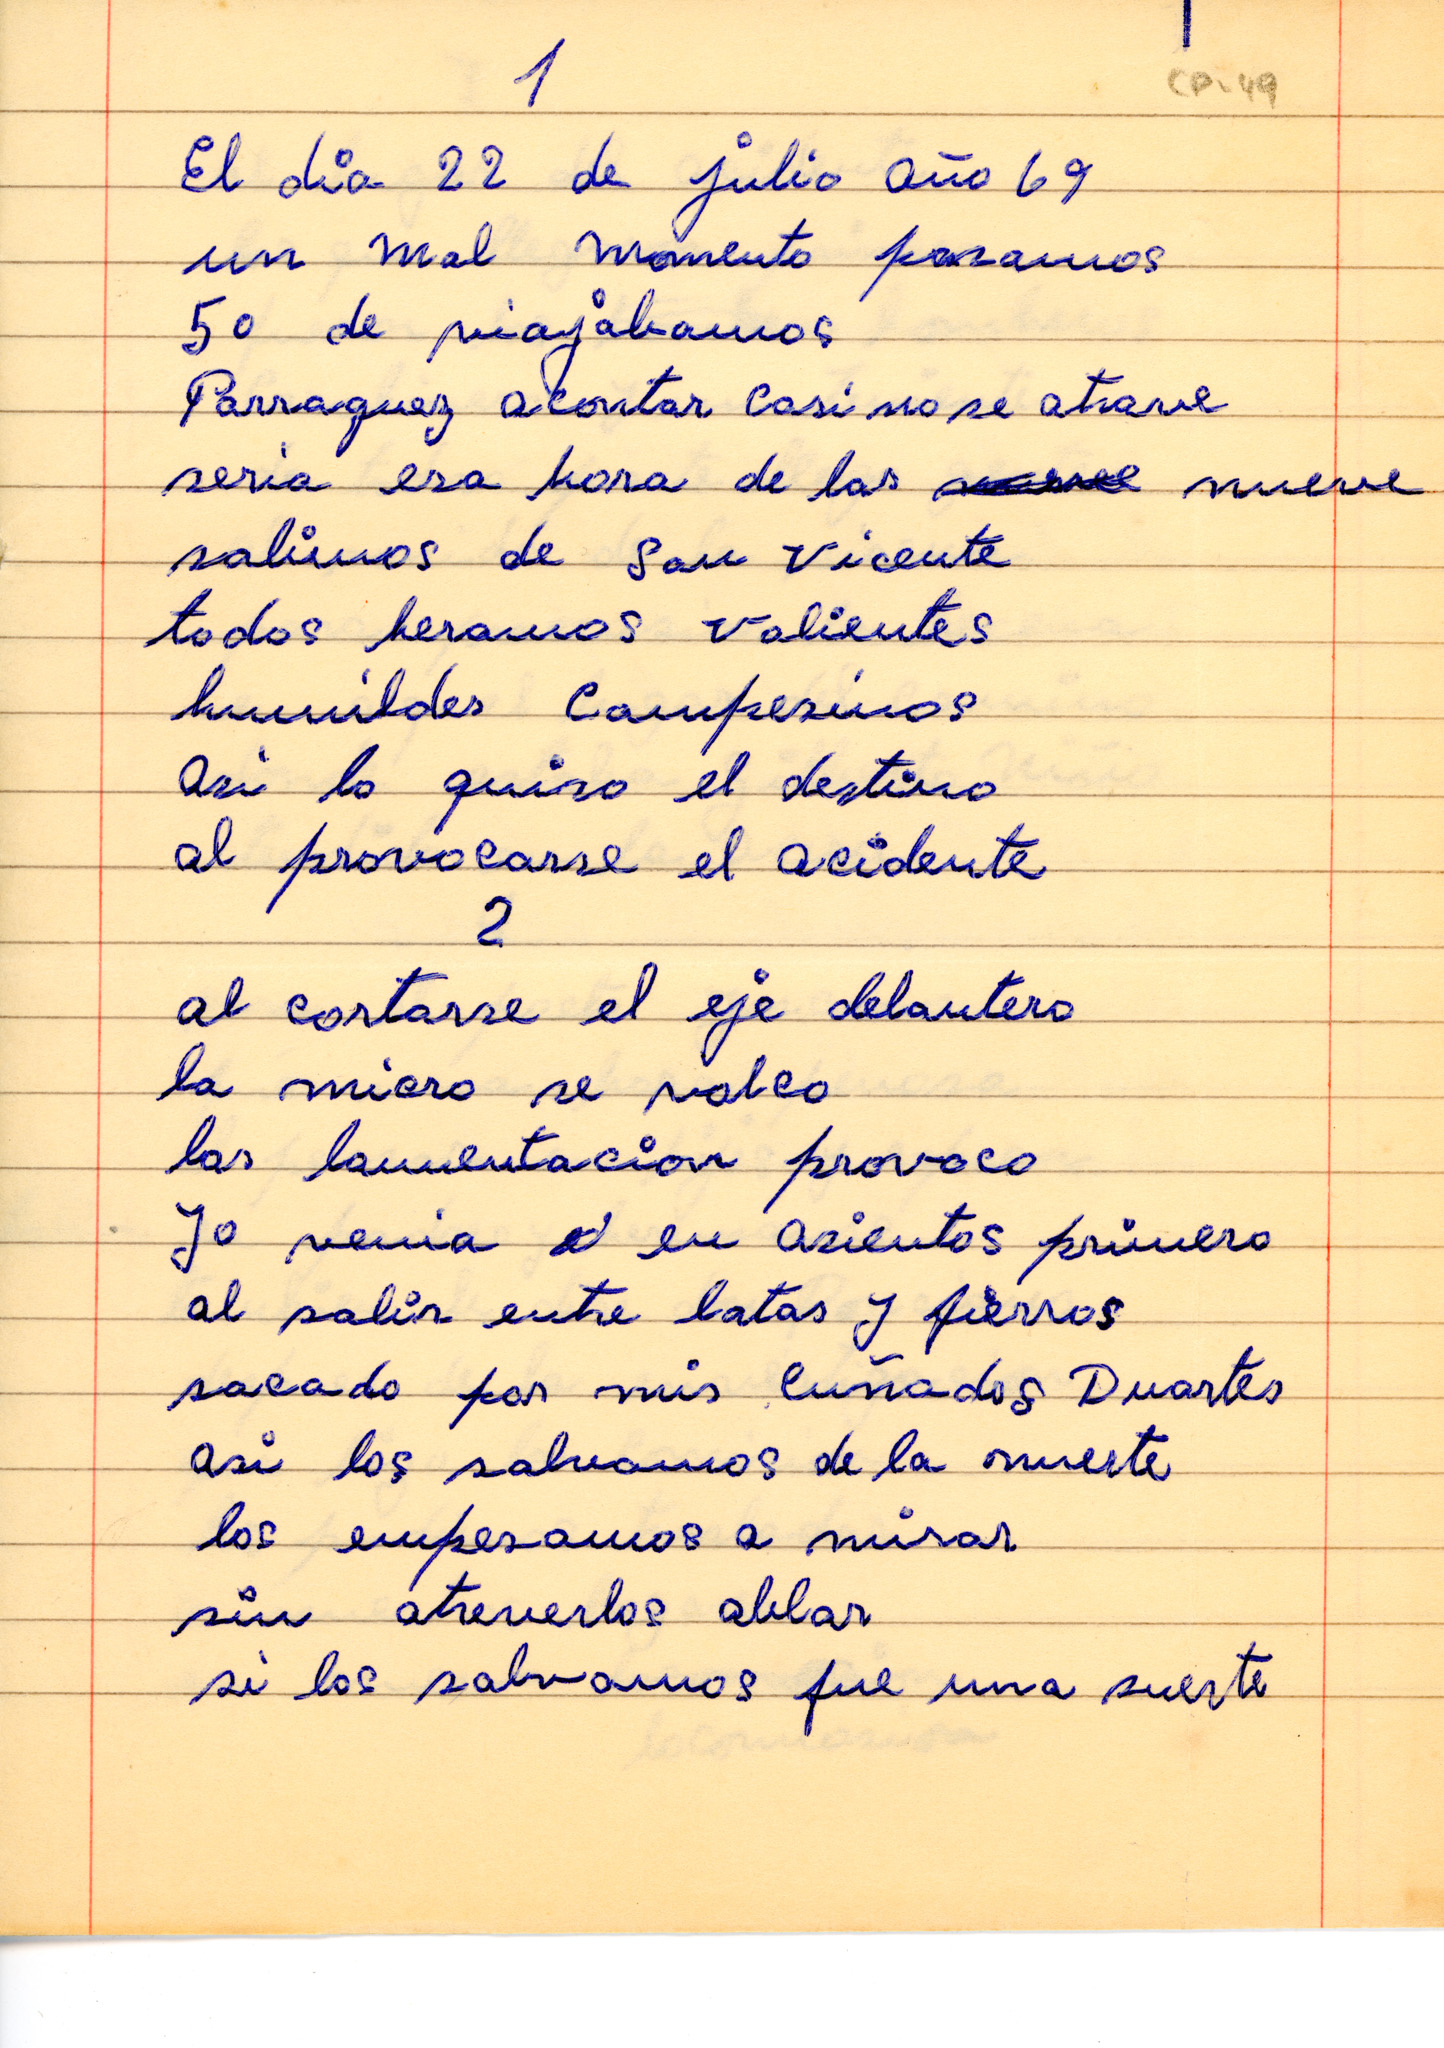 CP-49
1
El dia 22 de julio año 69
un mal momento pasamos
50 de viajabamos
Parraguez acontar casi no se atrave
seria esa hora de las nueve
salimos de San Vicente
todos heramos valientes
humildes campesinos
asi lo quiso el destino
al provocarse el acidente
2
al cortarse el eje delantero
la micro se volco
las lamentacion provoco
yo venia en asientos primero
al salir entre latas y fierros
sacado por mis cuñados Duartes
asi los salvamos de la muerte
los empesamos a mirar
sin atreverlos ablar
si los salvamos fue una suerte